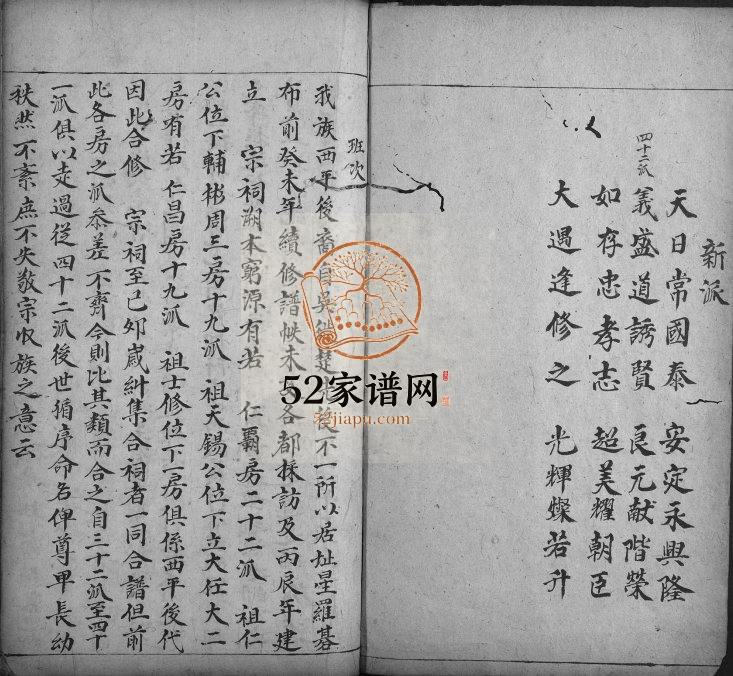 新派
天日常國泰 安定永興隆
四十二派
義盛道誘賢 良元献階榮
如存忠孝志 超美耀朝臣
大遇逢修之 光輝燦若升
班次
我族西平後裔自吳 楚 後不一所以居址星羅碁
布前癸未年續修譜帙未 各都採訪及丙辰年建
立 宗祠溯本窮源有若 仁霸房二十二派 祖仁
公位下輔彬周三房十九派 祖天錫公位下立大任大二
房有若 仁昌房十九派 祖士修位下一房俱係西平後代
因此合修 宗祠至己夘嵗糾集合祠者一同合譜但前
此各房之派叅差不齊今則比其類而合之自三十二派至四十
一派俱以走過從四十二派後世循序命名俾尊卑長幼
秩然不紊庶不失敬宗收族之意云
52家谱网
52jiapu.com